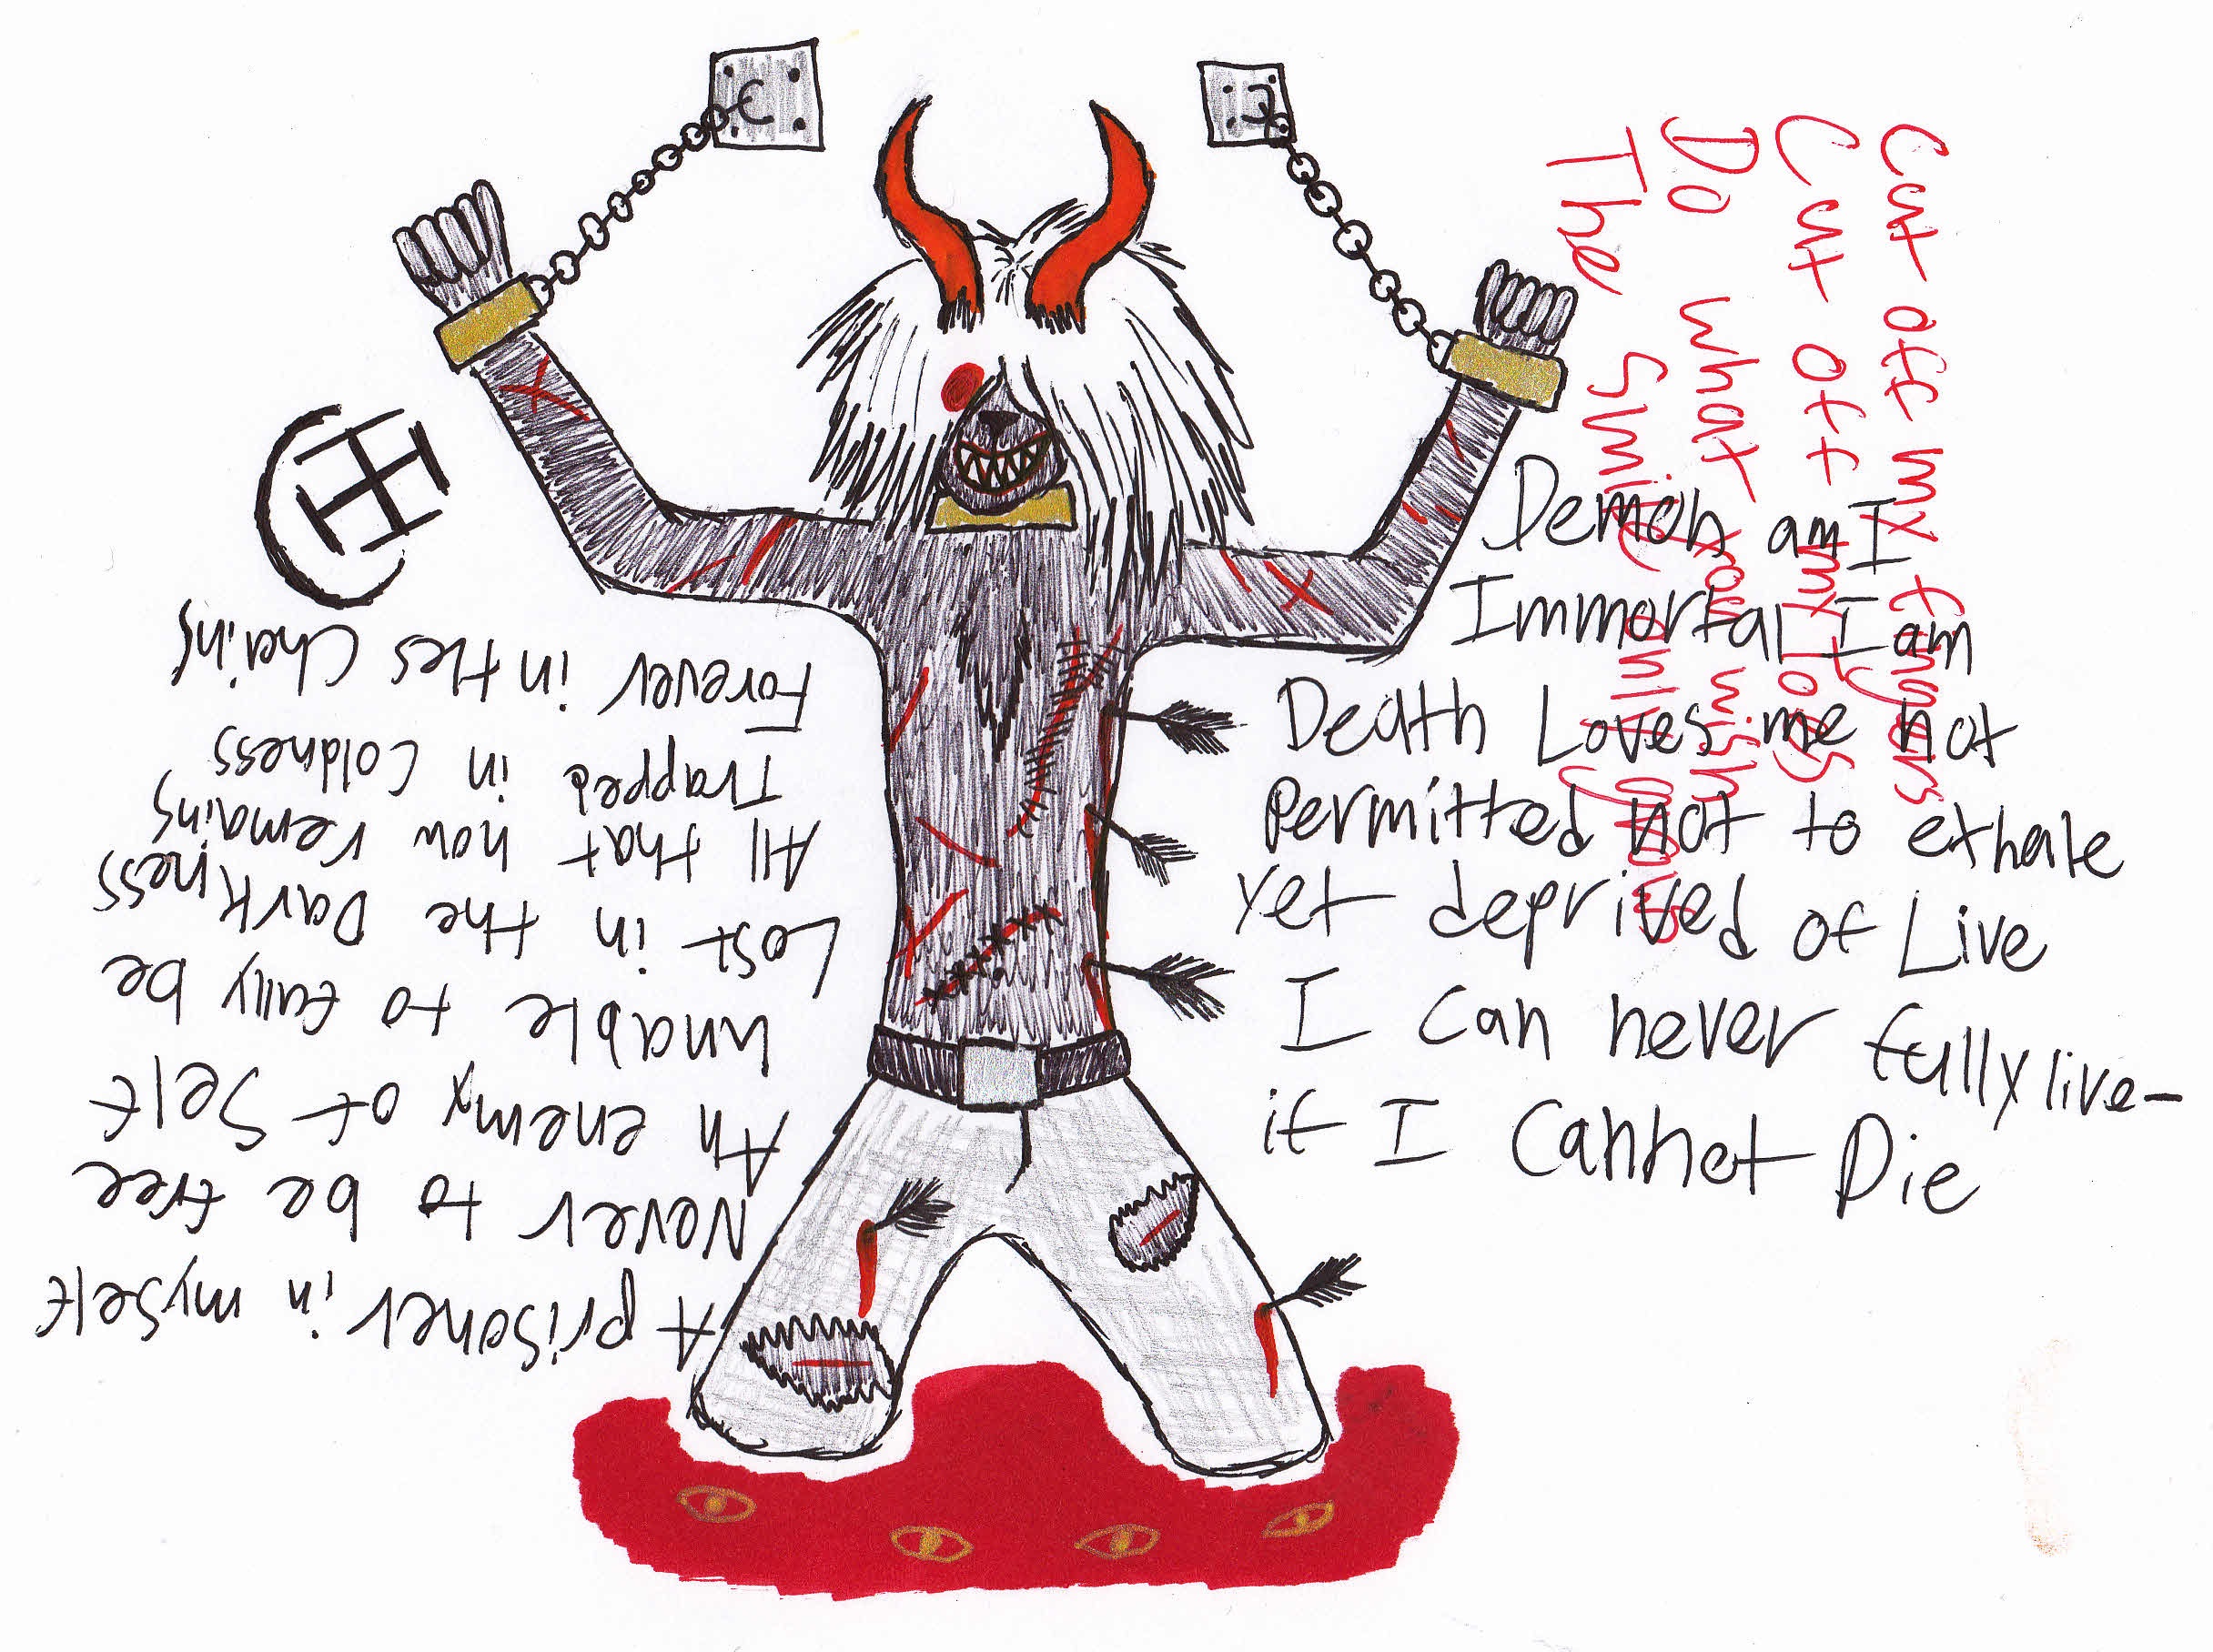 Demon am I
Immortal I am
Death Loves me not
Permitted not to exhale
yet deprived of Live
I can never fully live-
if I Cannot Die
Cut off my fingers
Cut off my Toes
Do what you wish
The Smile only grows
A prisoner in myself
Never to be free
An enemy of Self
unable to fully be
Lost in the Darkness
All that now remains
Trapped in Coldness
Forever in thes Chains